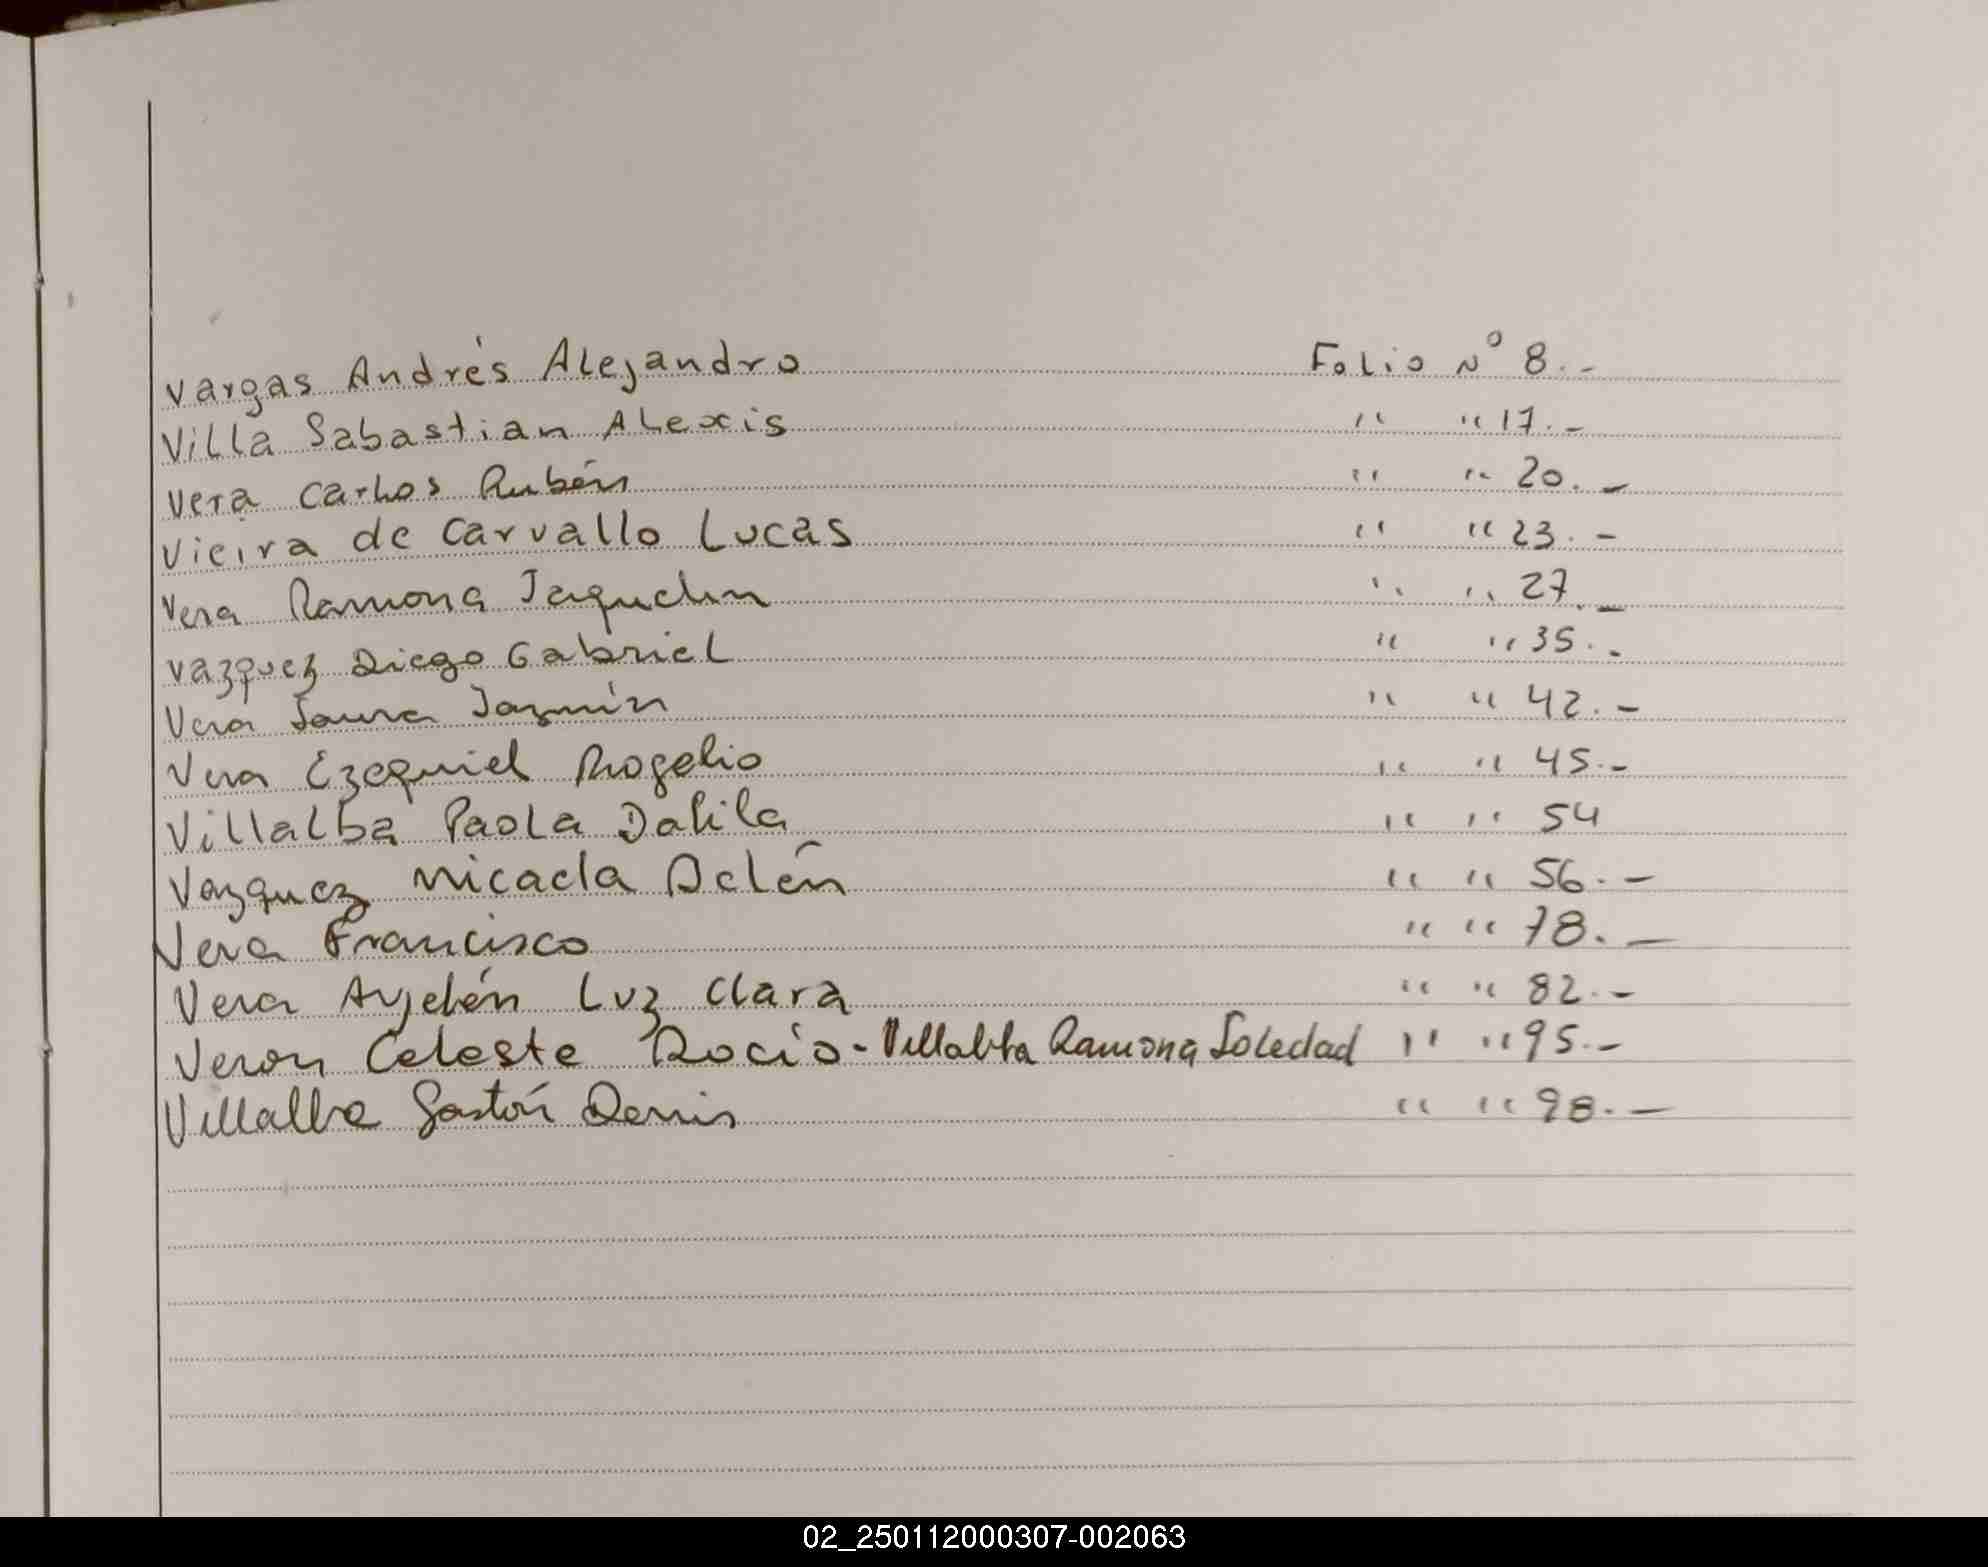 Vargas Andrés Alejandro Folio Nº 8.-
Villa Sabastian Alexis " " 17.-
Vera Carlos Rubén " " 20.-
Vieira de Carvallo Lucas " " 23.-
Vera Ramona Jaquelin " " 27.-
Vazquez Diego Gabriel " " 35.-
Vera Laura Jazmín " " 42.-
Vera Ezequiel Rogelio " " 45.-
Villalba Paola Dalila " " 54
Vazquez Micaela Belén " " 56.-
Vera Francisco " " 78.-
Vera Ayelén Luz Clara " " 82.-
Veron Celeste Rocío - Villalba Ramona Soledad " " 95.-
Villalba Gastón Denis " " 98.-
02_250112000307-002063